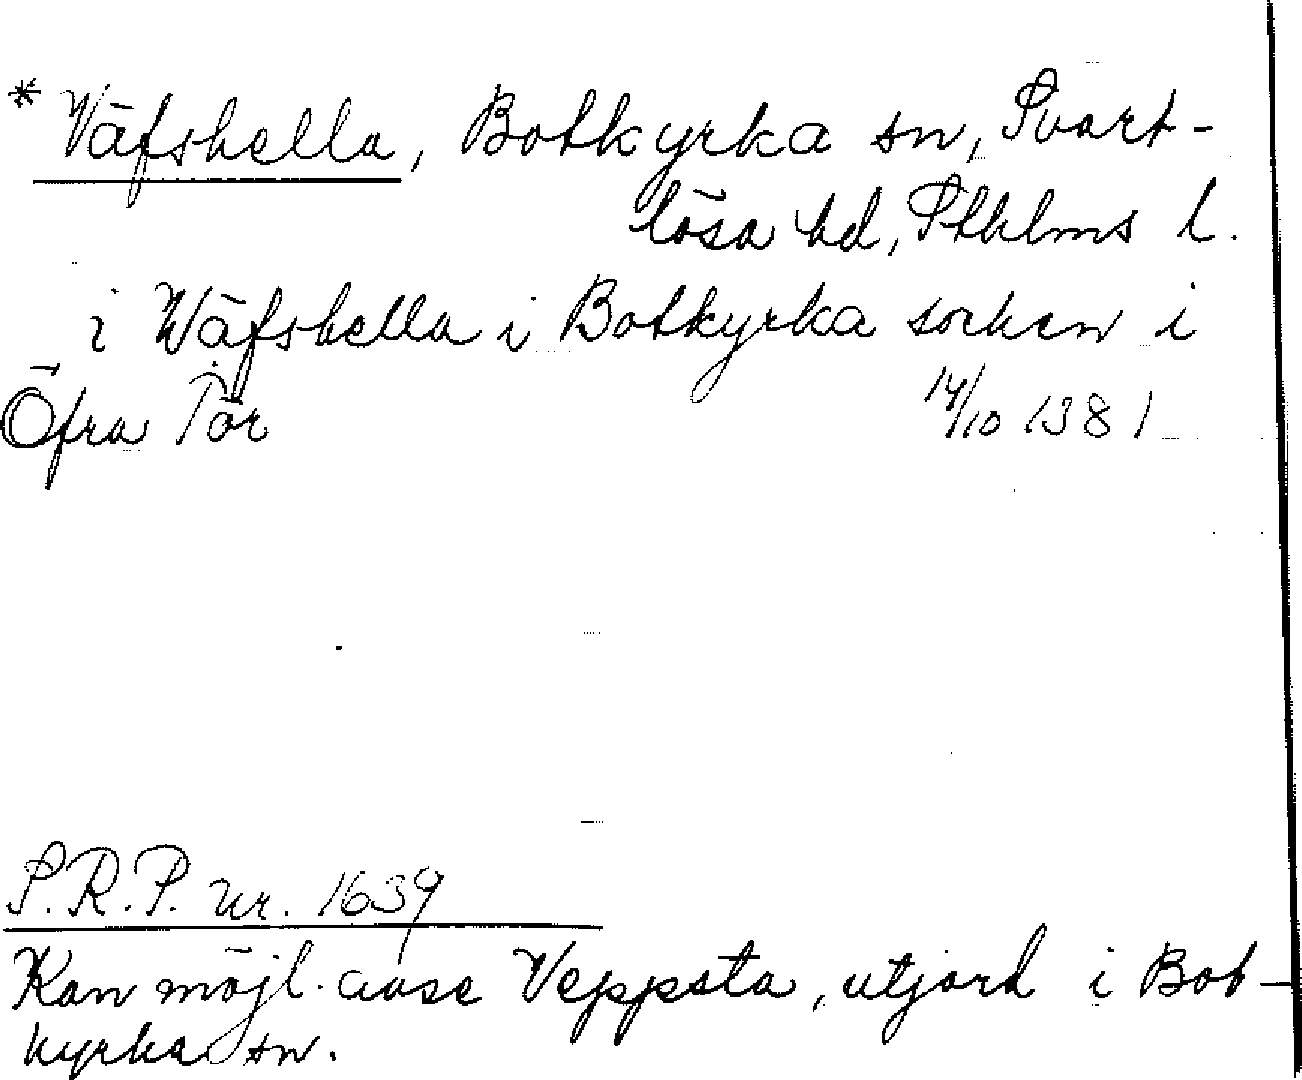 * Väfshella, Botkyrka sn, Svart-
lösa hd, Sthlms l.
i Wäfshella i Botkyrka socken i
Öfra Tör 14/10 1381
S.R.P. nr. 1639
Kan möjl. avse Veppsta, utjord i Bot-
kyrka sn.